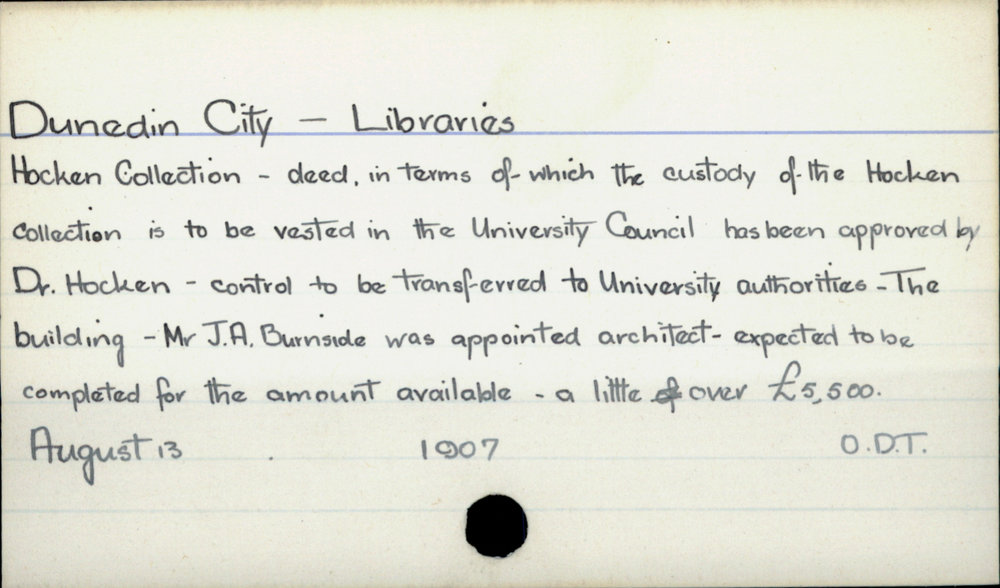 Dunedin City - Libraries
Hocken Collection - deed, in terms of which the custody of the Hocken
collection is to be vested in the University Council has been approved by
Dr. Hocken - control to be transferred to University authorities - The
building - Mr J.A. Burnside was appointed architect - expected to be
completed for the amount available - a little over £5,500.
August 13 1907 O.D.T.